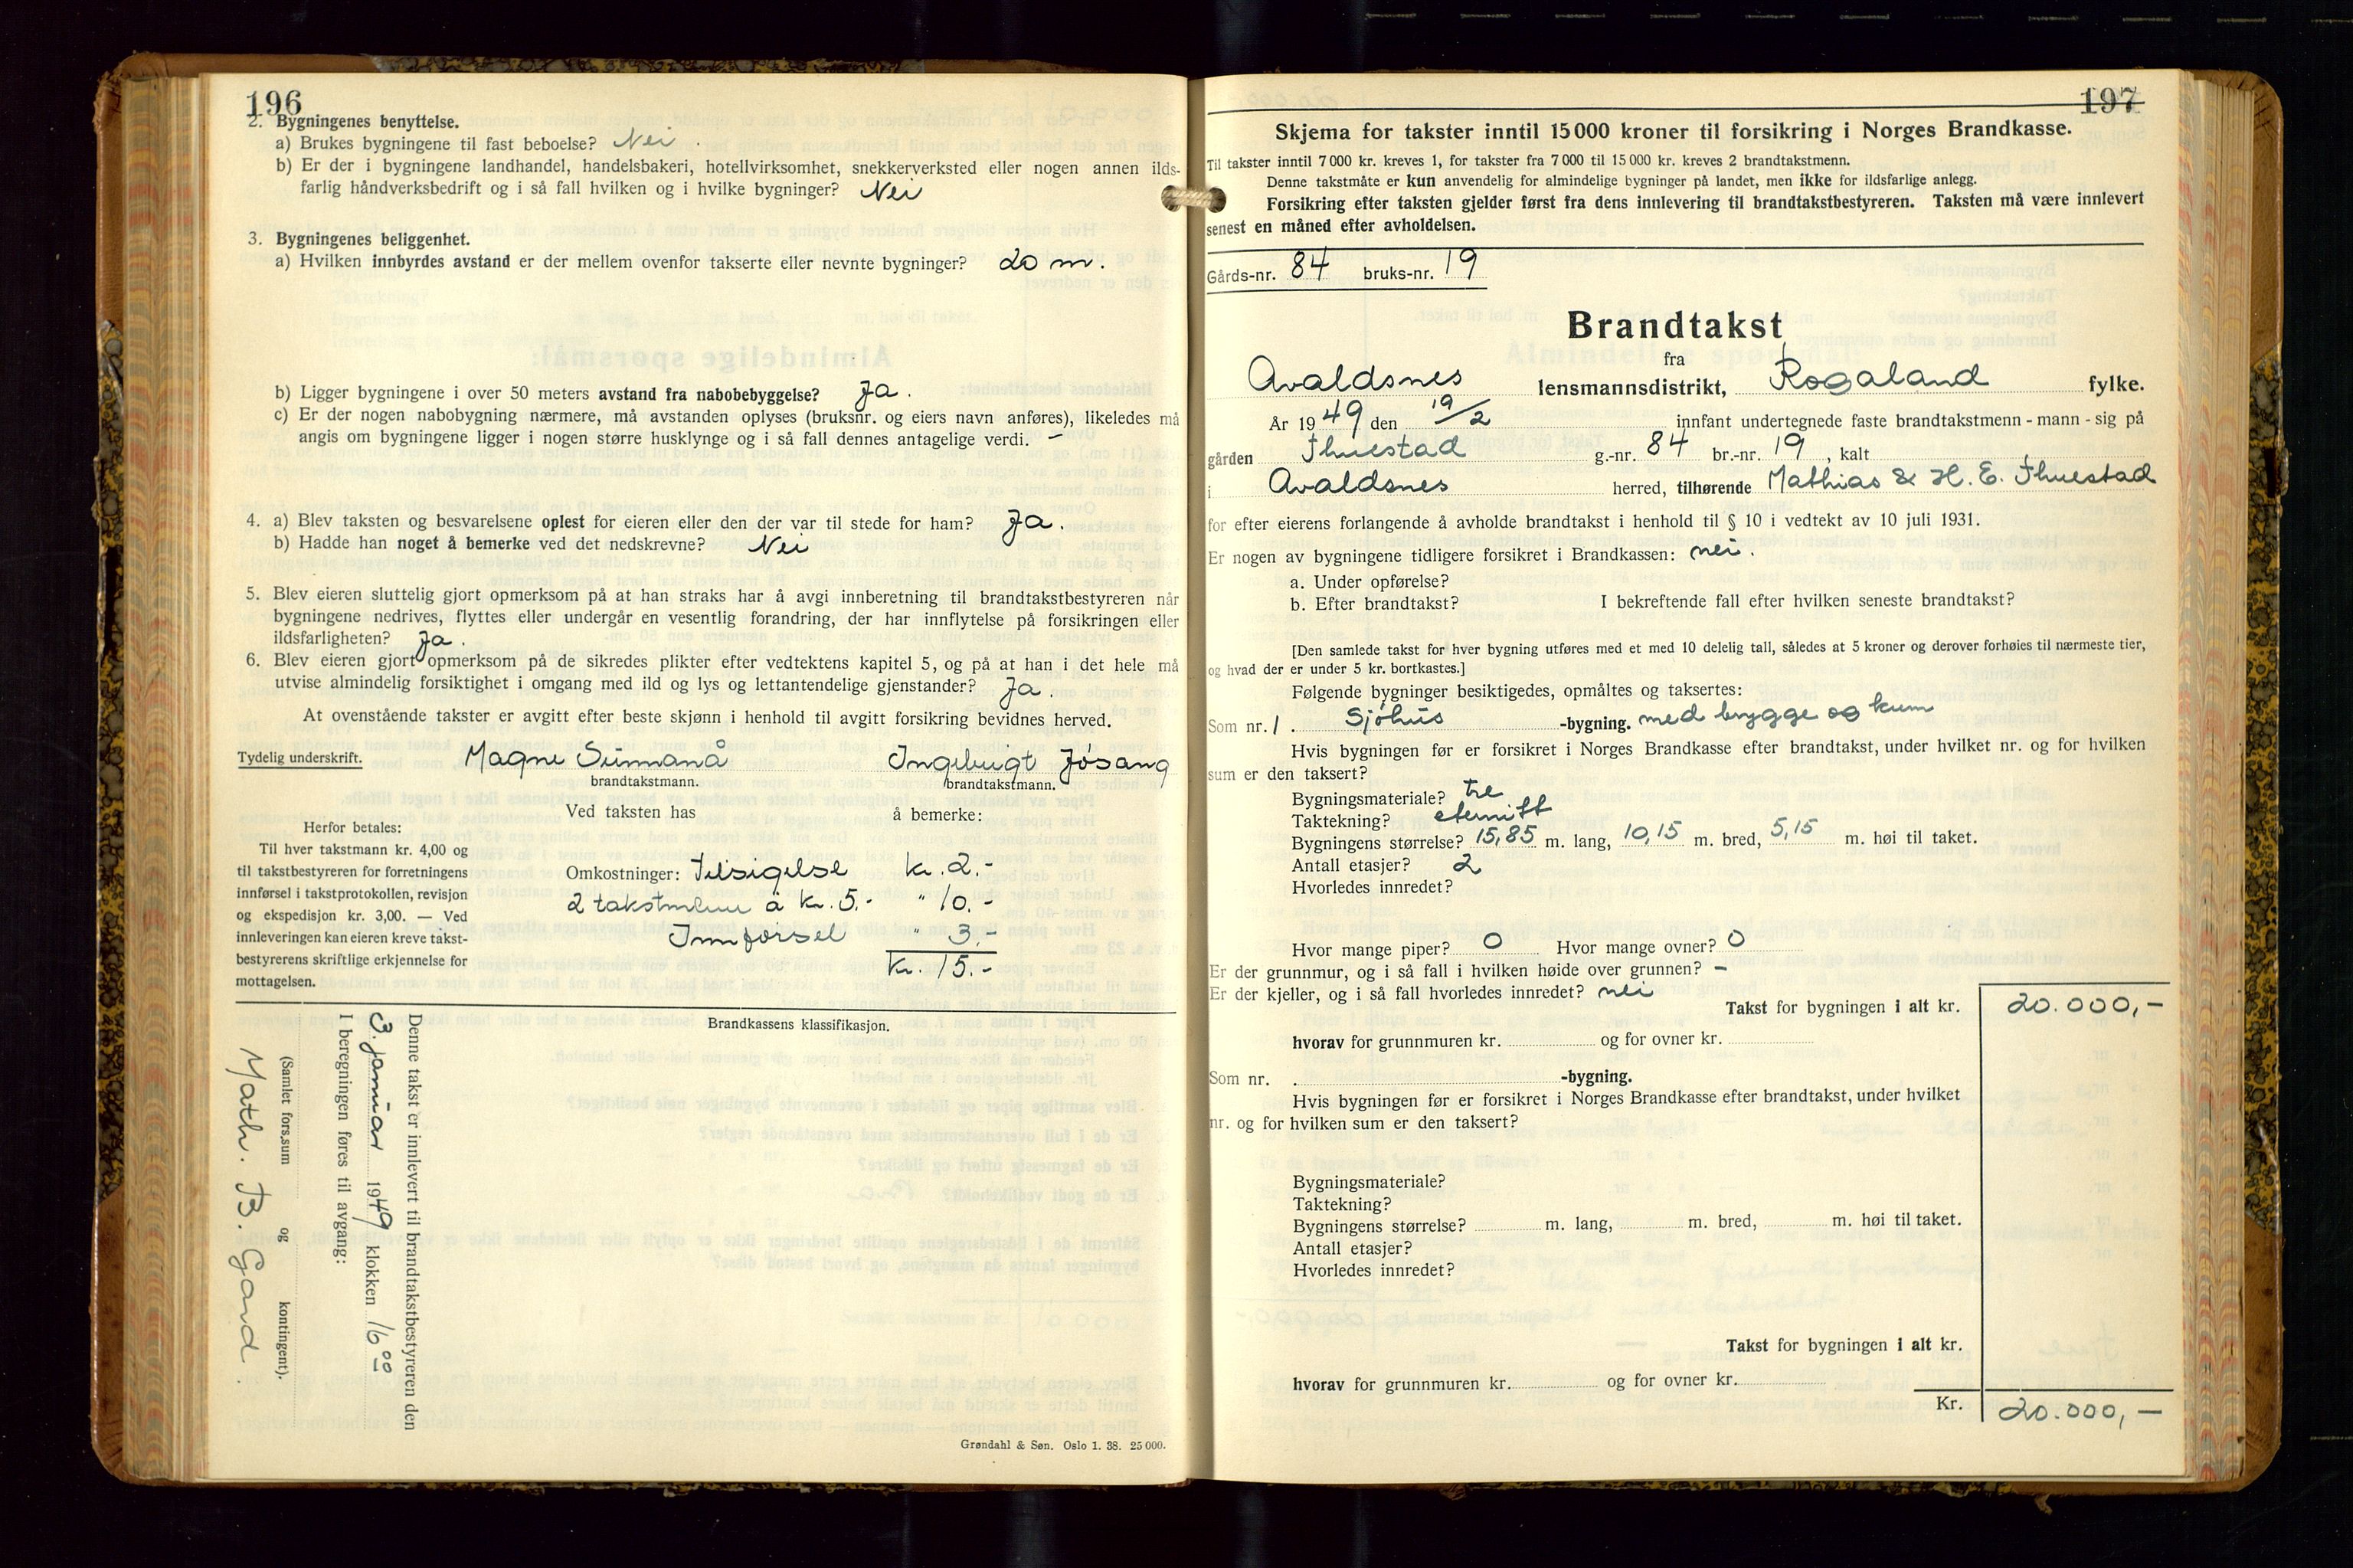 196
2. Bygningenes benyttelse.
a) Brukes bygningene til fast beboelse? Nei.
b) Er der i bygningene landhandel, handelsbakeri, hotellvirksomhet, snekkerverksted eller nogen annen ilds-
farlig håndverksbedrift og i så fall hvilken og i hvilke bygninger? Nei
3. Bygningenes beliggenhet.
a) Hvilken innbyrdes avstand er der mellem ovenfor takserte eller nevnte bygninger? 20 m.
b) Ligger bygningene i over 50 meters avstand fra nabobebyggelse? Ja.
c) Er der nogen nabobygning nærmere, må avstanden oplyses (bruksnr. og eiers navn anføres), likeledes må
angis om bygningene ligger i nogen større husklynge og i så fall dennes antagelige verdi. —
4. a) Blev taksten og besvarelsene oplest for eieren eller den der var til stede for ham? Ja.
b) Hadde han noget å bemerke ved det nedskrevne? Nei
5. Blev eieren sluttelig gjort opmerksom på at han straks har å avgi innberetning til brandtakstbestyreren når
bygningene nedrives, flyttes eller undergår en vesentlig forandring, der har innflytelse på forsikringen eller
ildsfarligheten? Ja.
6. Blev eieren gjort opmerksom på de sikredes plikter efter vedtektens kapitel 5, og på at han i det hele må
utvise almindelig forsiktighet i omgang med ild og lys og lettantendelige gjenstander? Ja.
At ovenstående takster er avgitt efter beste skjønn i henhold til avgitt forsikring bevidnes herved.
Tydelig underskrift. Magne Sunnanå Ingebrigt Jøsang
brandtakstmann. brandtakstmann.
Ved taksten has å bemerke:
Herfor betales:
Til hver takstmann kr. 4,00 og
til takstbestyreren for forretningens
innførsel i takstprotokollen, revisjon
og ekspedisjon kr. 3,00. — Ved
innleveringen kan eieren kreve takst-
bestyrerens skriftlige erkjennelse for
mottagelsen.
Omkostninger: Tilsigelse kr. 2.-
2 takstmenn à kr. 5.- " 10.-
Innførsel " 3.-
kr. 15.-
Brandkassens klassifikasjon.
Denne takst er innlevert til brandtakstbestyreren den
3. januar 1949 klokken 16 00
I beregningen føres til avgang:
(Samlet fors.sum og kontingent).
Math. B. Gard.
Grøndahl & Søn. Oslo 1. 38. 25 000.
197
Skjema for takster inntil 15 000 kroner til forsikring i Norges Brandkasse.
Til takster inntil 7 000 kr. kreves 1, for takster fra 7 000 til 15 000 kr. kreves 2 brandtakstmenn.
Denne takstmåte er kun anvendelig for almindelige bygninger på landet, men ikke for ildsfarlige anlegg.
Forsikring efter taksten gjelder først fra dens innlevering til brandtakstbestyreren. Taksten må være innlevert
senest en måned efter avholdelsen.
Gårds-nr. 84 bruks-nr. 19
Brandtakst
fra
Avaldsnes lensmannsdistrikt, Rogaland fylke.
År 1949 den 19/2 innfant undertegnede faste brandtakstmenn - mann - sig på
gården Thuestad g.-nr. 84 br.-nr. 19, kalt
i Avaldsnes herred, tilhørende Mathias & H. E. Thuestad
for efter eierens forlangende å avholde brandtakst i henhold til § 10 i vedtekt av 10 juli 1931.
Er nogen av bygningene tidligere forsikret i Brandkassen: nei.
a. Under opførelse?
b. Efter brandtakst? I bekreftende fall efter hvilken seneste brandtakst?
[Den samlede takst for hver bygning utføres med et med 10 delelig tall, således at 5 kroner og derover forhøies til nærmeste tier,
og hvad der er under 5 kr. bortkastes.]
Følgende bygninger besiktigedes, opmåltes og taksertes:
Som nr. 1. Sjøhus -bygning. med brygge og kum
Hvis bygningen før er forsikret i Norges Brandkasse efter brandtakst, under hvilket nr. og for hvilken
sum er den taksert?
Bygningsmateriale? tre
Taktekning? eternitt
Bygningens størrelse? 15,85 m. lang, 10,15 m. bred, 5,15 m. høi til taket.
Antall etasjer? 2
Hvorledes innredet?
Hvor mange piper? 0 Hvor mange ovner? 0
Er der grunnmur, og i så fall i hvilken høide over grunnen? —
Er der kjeller, og i så fall hvorledes innredet? nei
Takst for bygningen i alt kr. 20.000,—
hvorav for grunnmuren kr. og for ovner kr.
Som nr. . -bygning.
Hvis bygningen før er forsikret i Norges Brandkasse efter brandtakst, under hvilket
nr. og for hvilken sum er den taksert?
Bygningsmateriale?
Taktekning?
Bygningens størrelse? m. lang, m. bred, m. høi til taket.
Antall etasjer?
Hvorledes innredet?
Takst for bygningen i alt kr.
hvorav for grunnmuren kr. og for ovner kr.
Kr. 20.000,—